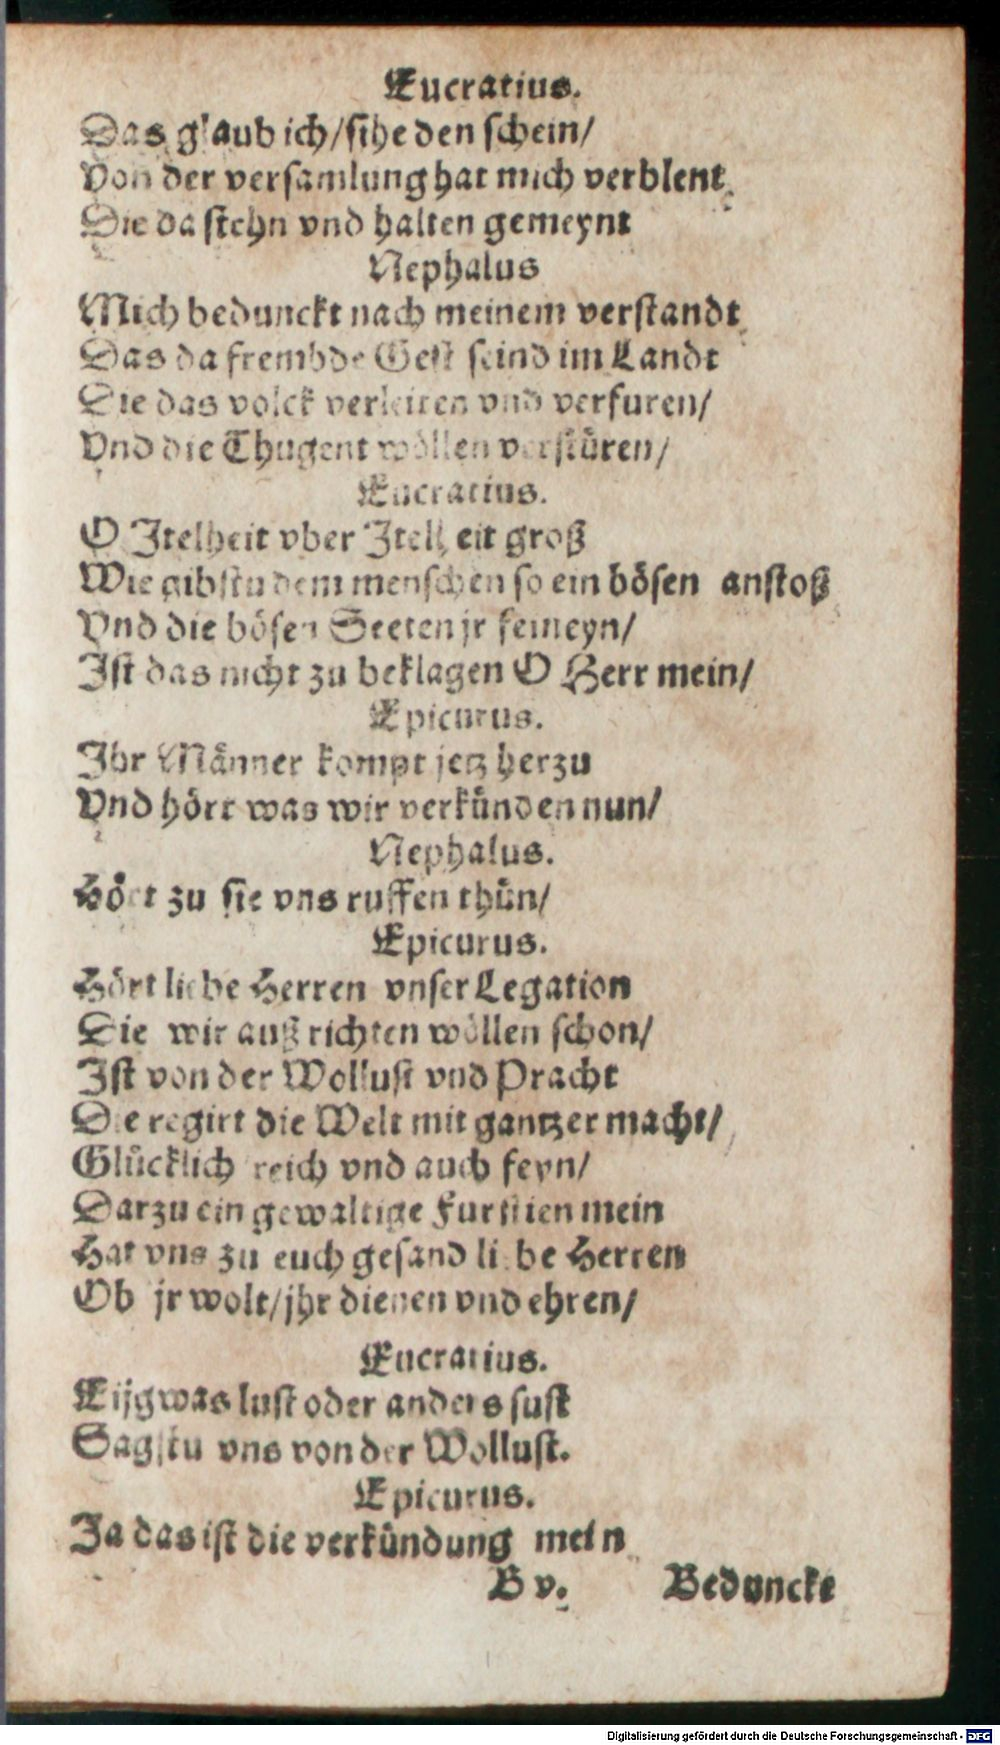 Eucratius.
Das glaub ich/sihe den schein/
Von der versamlung hat mich verblent
Die da stehn vnd halten gemeynt
Nephalus
Mich bedunckt nach meinem verstandt
Das da frembde Gest seind im Landt
Die das volck verleiten vnd verfuren/
Vnd die Thugent wöllen verstüren/
Eucratius.
O Itelheit vber Itelheit groß
Wie gibstu dem menschen so ein bösen anstoß
Vnd die bösen Secten jr femeyn/
Ist das nicht zu beklagen O Herr mein/
Epicurus.
Ihr Männer kompt jetz herzu
Vnd hört was wir verkünden nun/
Nephalus.
Hört zu sie vns ruffen thün/
Epicurus.
Hört liebe Herren vnser Legation
Die wir außrichten wöllen schon/
Ist von der Wollust vnd Pracht
Die regirt die Welt mit gantzer macht/
Glücklich reich vnd auch feyn/
Darzu ein gewaltige Furstien mein
Hat vns zu euch gesand liebe Herren
Ob jr wolt/jhr dienen vnd ehren/
Eucratius.
Eijg was lust oder anders sust
Sagstu vns von der Wollust.
Epicurus.
Ja das ist die verkündung mein
B v. Beduncke
Digitalisierung gefördert durch die Deutsche Forschungsgemeinschaft - DFG